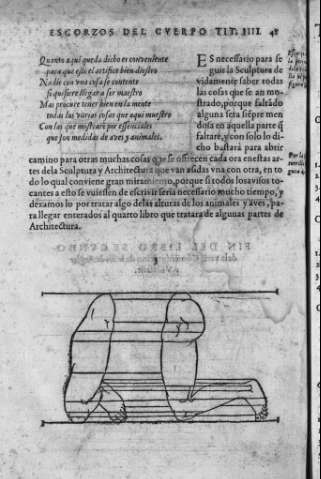 ESCORZOS DEL CVERPO TIT. IIII. 48
Quanto aqui queda dicho es conveniente
para que esto el artifice bien diestro
Nadie con vna cosa se contente
si quisiere llegar a ser maestro
Mas procure tener bien en la mente
todas las varias cosas que aqui muestro
Con las que mostrare por essenciales
que son medidas de aves y animales.
ES necessario para se
guir la Sculptura de
vidamente saber todas
las cosas que se an mo-
strado, porque faltãdo
alguna sera siẽpre men
dosa en aquella parte q̃
faltare, y con solo lo di-
cho bastará para abrir
camino para otras muchas cosas que se ofrecen cada ora en estas ar-
tes de la Sculptura y Architectura que van asidas vna con otra, en to
do lo qual conviene gran miramiento, porque si todos los avisos to-
cantes a esto se vuiessen de escrivir seria necessario mucho tiempo, y
dexamos lo por tratar algo de las alturas de los animales y aves, pa-
ra llegar enterados al quarto libro que tratara de algunas partes de
Architectura.